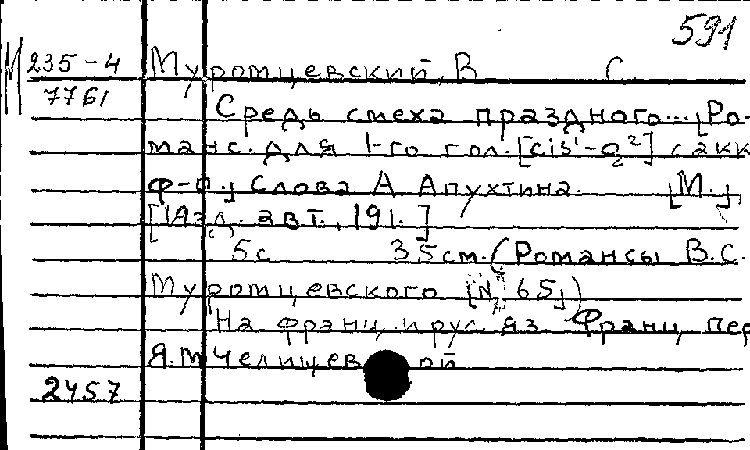 591
М 235-4 Муромцевский, В. С.
7761
Средь смеха праздного... [Ро-
манс. Для 1-го гол. [cis¹-g²] с акк.
ф-п.] Слова А. Апухтина. [М.]
[Изд. авт., 191. ]
5с 35см. (Романсы В.С.
Муромцевского [№ 65])
На франц. и рус. яз. Франц. пер
Я.М. Челищев ой
2457